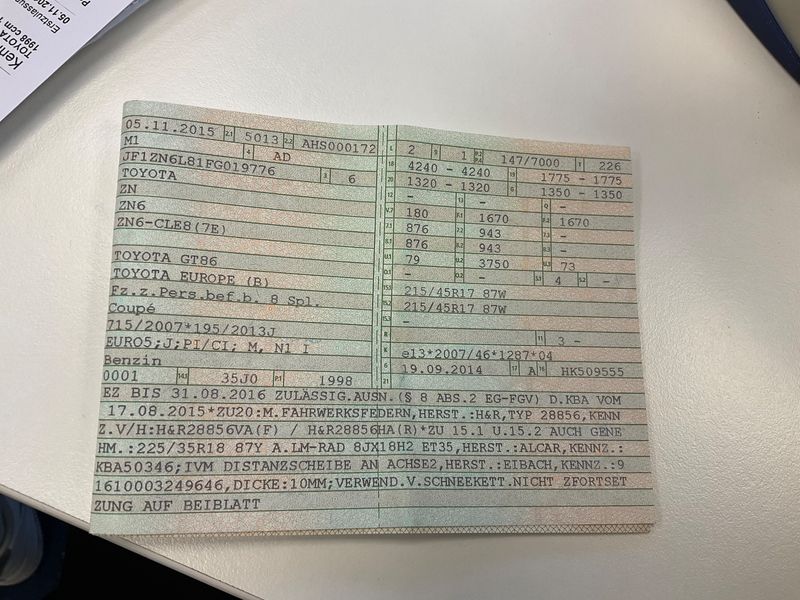 05.11.2015 2.1 5013 2.2 AHS000172
M1 4 AD
JF1ZN6L81FG019776
TOYOTA 3 6
ZN
ZN6
ZN6-CLE8(7E)
TOYOTA GT86
TOYOTA EUROPE (B)
Fz.z.Pers.bef.b. 8 Spl.
Coupé
715/2007*195/2013J
EURO5;J;PI/CI; M, N1 I
Benzin
0001 14.1 35J0 P.1 1998
L 2 9 1 P.2 P.4 147/7000 T 226
18 4240 - 4240 19 1775 - 1775
20 1320 - 1320 G 1350 - 1350
12 - 13 - Q -
V.7 180 F.1 1670 F.2 1670
7.1 876 7.2 943 7.3 -
8.1 876 8.2 943 8.3 -
U.1 79 U.2 3750 U.3 73
O.1 - O.2 - S.1 4 S.2 -
15.1 215/45R17 87W
15.2 215/45R17 87W
15.3 -
R 11 3 -
K e13*2007/46*1287*04
6 19.09.2014 17 A 16 HK509555
21
EZ BIS 31.08.2016 ZULÄSSIG.AUSN.(§ 8 ABS.2 EG-FGV) D.KBA VOM
17.08.2015*ZU20:M.FAHRWERKSFEDERN,HERST.:H&R,TYP 28856,KENN
Z.V/H:H&R28856VA(F) / H&R28856HA(R)*ZU 15.1 U.15.2 AUCH GENE
HM.:225/35R18 87Y A.LM-RAD 8JX18H2 ET35,HERST.:ALCAR,KENNZ.:
KBA50346;IVM DISTANZSCHEIBE AN ACHSE2,HERST.:EIBACH,KENNZ.:9
1610003249646,DICKE:10MM;VERWEND.V.SCHNEEKETT.NICHT ZFORTSET
ZUNG AUF BEIBLATT
Erstzulassu
05.11.20
1998 ccm
TOYOTA
Kenn